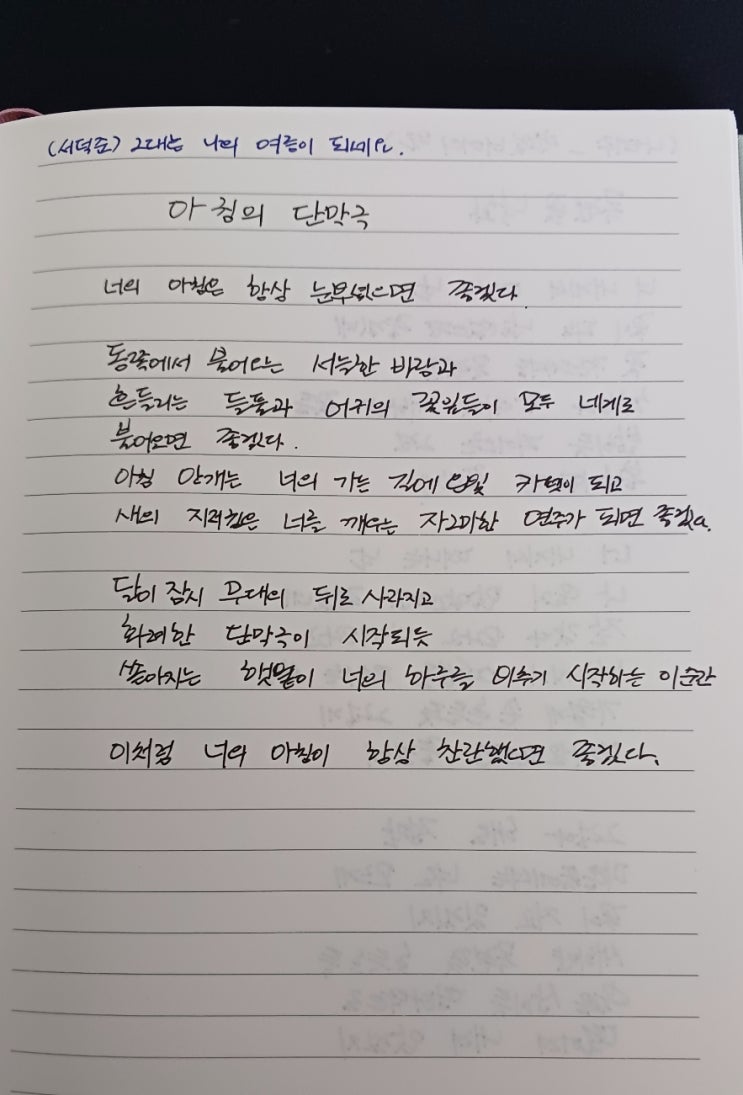 (서덕준) 그대는 나의 여름이 되세요.
아침의 단막극
너의 아침은 항상 눈부셨으면 좋겠다.
동쪽에서 불어오는 서늘한 바람과
흔들리는 들풀과 어귀의 꽃잎들이 모두 네게로
불어오면 좋겠다.
아침 안개는 너의 가는 길에 은빛 카펫이 되고
새의 지저귐은 너를 깨우는 자그마한 연주가 되면 좋겠다.
달이 잠시 무대의 뒤로 사라지고
화려한 단막극이 시작되듯
쏟아지는 햇볕이 너의 하루를 비추기 시작하는 이 순간
이처럼 너의 아침이 항상 찬란했으면 좋겠다.